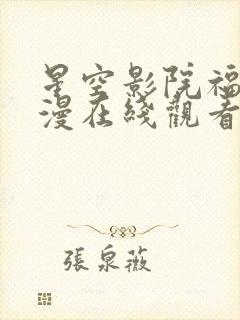 星空影院福
漫在綫觀看
張泉薇